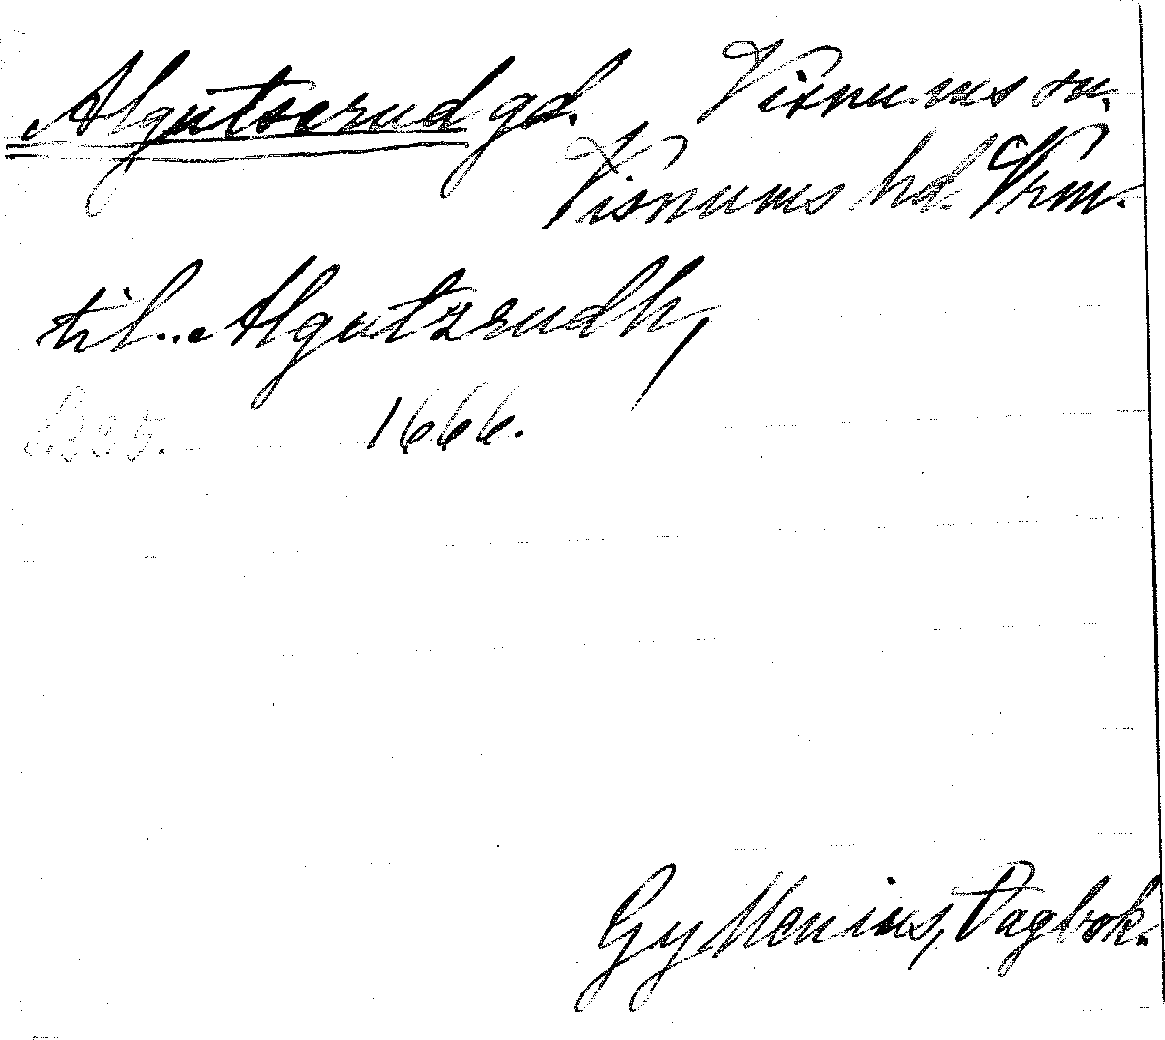 Algutserud gd. Visnums sn.
Visnums hd. Vrm.
til.. Algutzrudh,
S. 225. 1666.
Gyllenius, Dagbok.